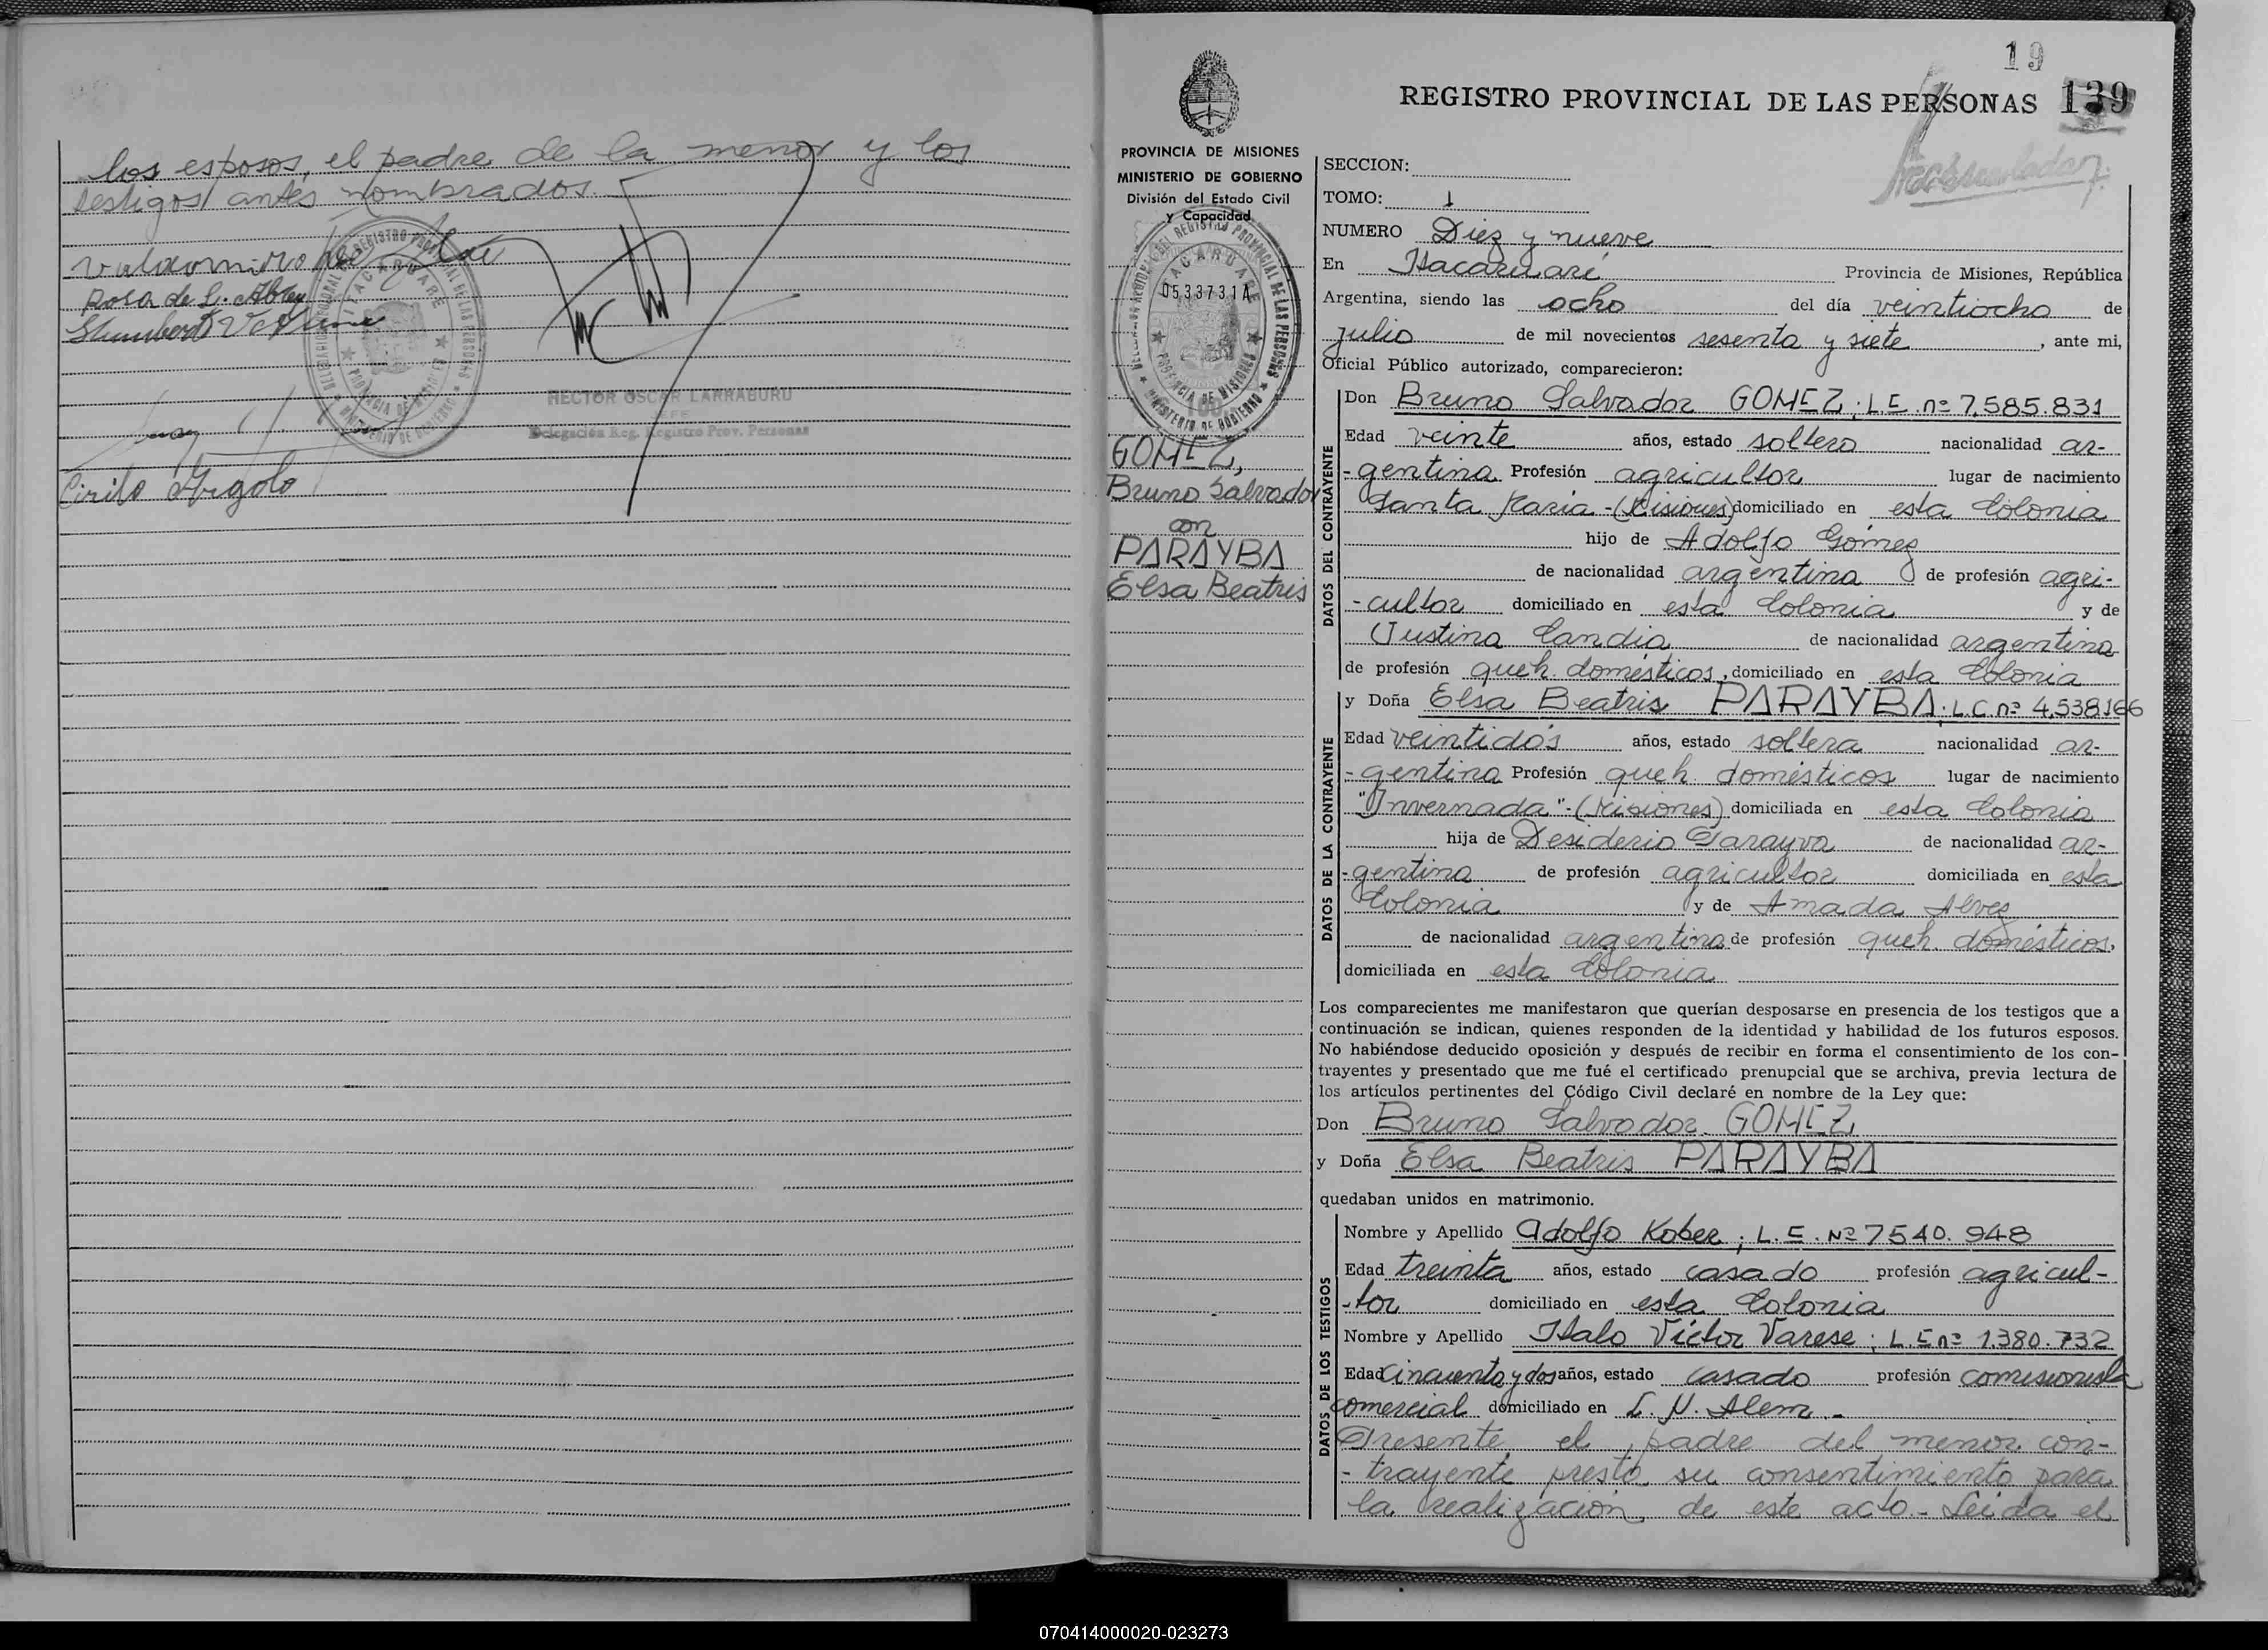 los esposos, el padre de la menor y los
testigos antes nombrados.
Rosa de L. Abreu
HECTOR OSCAR LARRABURU
JEFE
Delegación Reg. Registro Prov. Personas
Cirilo Argolo
19
REGISTRO PROVINCIAL DE LAS PERSONAS 139
PROVINCIA DE MISIONES
MINISTERIO DE GOBIERNO
División del Estado Civil
y Capacidad
ITACARUARE
05337314
PROVINCIA DE MISIONES
GOMEZ,
Bruno Salvador
con
PARAYBA
Elsa Beatris
SECCION:
TOMO: 1
NUMERO Diez y nueve
En Itacaruaré Provincia de Misiones, República
Argentina, siendo las ocho del día veintiocho de
julio de mil novecientos sesenta y siete, ante mi,
Oficial Público autorizado, comparecieron:
DATOS DEL CONTRAYENTE
Don Bruno Salvador GOMEZ; L.E. nº 7.585.831
Edad veinte años, estado soltero nacionalidad ar-
-gentina Profesión agricultor lugar de nacimiento
Santa María - (Misiones) domiciliado en esta Colonia
hijo de Adolfo Gómez
de nacionalidad argentina de profesión agri-
-cultor domiciliado en esta Colonia y de
Justina Candia de nacionalidad argentina
de profesión queh. domésticos, domiciliado en esta Colonia
DATOS DE LA CONTRAYENTE
y Doña Elsa Beatris PARAYBA; L.C. nº 4.538.166
Edad veintidós años, estado soltera nacionalidad ar-
-gentina Profesión queh. domésticos lugar de nacimiento
"Invernada" - (Misiones) domiciliada en esta Colonia
hija de Desiderio Parayva de nacionalidad ar-
-gentina de profesión agricultor domiciliada en esta
Colonia y de Amada Alvez
de nacionalidad argentina de profesión queh. domésticos,
domiciliada en esta Colonia
Los comparecientes me manifestaron que querían desposarse en presencia de los testigos que a
continuación se indican, quienes responden de la identidad y habilidad de los futuros esposos.
No habiéndose deducido oposición y después de recibir en forma el consentimiento de los con-
trayentes y presentado que me fué el certificado prenupcial que se archiva, previa lectura de
los artículos pertinentes del Código Civil declaré en nombre de la Ley que:
Don Bruno Salvador GOMEZ
y Doña Elsa Beatris PARAYBA
quedaban unidos en matrimonio.
DATOS DE LOS TESTIGOS
Nombre y Apellido Adolfo Kober; L.E. Nº 7540.948
Edad treinta años, estado casado profesión agricul-
-tor domiciliado en esta Colonia
Nombre y Apellido Italo Víctor Varese; L.E. nº 1.380.732
Edad cincuenta y dos años, estado casado profesión comisionista
comercial domiciliado en L. N. Alem.-
Presente el padre del menor con-
-trayente prestó su consentimiento para
la realización de este acto.- Leída el
070414000020-023273